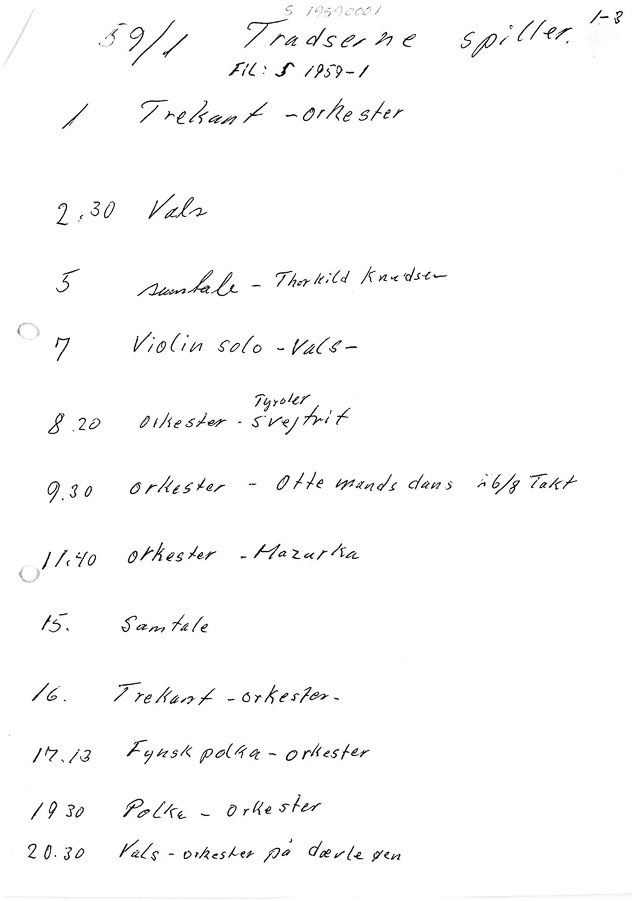 S 19590001
59/1 Tradserne spiller. 1-3
FIL: S 1959-1
1 Trekant - orkester
2.30 Vals
5 samtale - Thorkild Knudsen
7 Violin solo - Vals -
8.20 orkester - Tyroler Svejtrit
9.30 orkester - Otte mands dans i 6/8 Takt
11.40 orkester - Mazurka
15. Samtale
16. Trekant - orkester -
17.13 Fynsk polka - orkester
19 30 Polka - orkester
20.30 Vals - orkester på